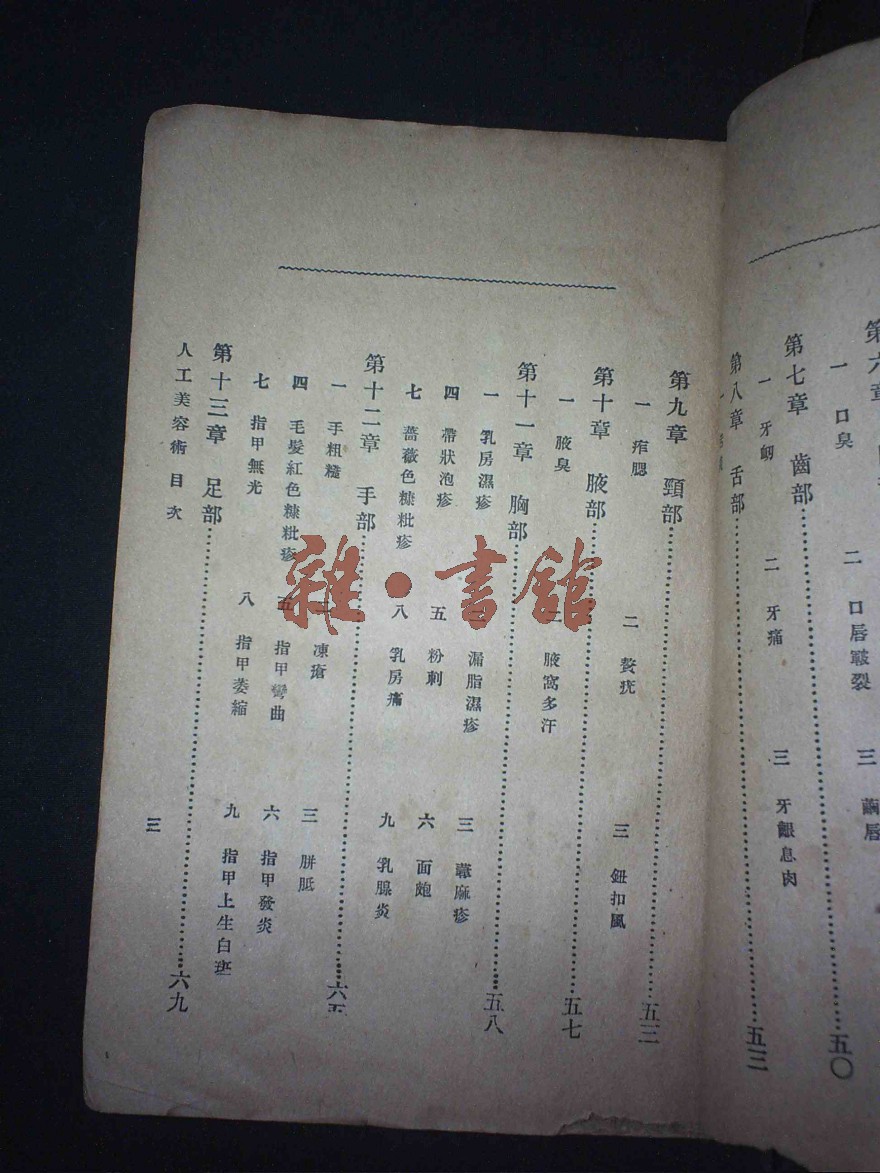 口臭 二 口唇皸裂 三 繭唇
第七章 齒部 五〇
一 牙衂 二 牙痛 三 牙齦息肉
第八章 舌部 五三
第九章 頸部 五三
一 痄腮 二 贅疣 三 鈕扣風
第十章 腋部 五七
一 腋臭 二 腋窩多汗
第十一章 胸部 五八
一 乳房濕疹 二 漏脂濕疹 三 蕁麻疹
四 帶狀泡疹 五 粉刺 六 面皰
七 薔薇色糠粃疹 八 乳房痛 九 乳腺炎
第十二章 手部 六五
一 手粗糙 二 凍瘡 三 胼胝
四 毛髮紅色糠粃疹 五 指甲彎曲 六 指甲發炎
七 指甲無光 八 指甲萎縮 九 指甲上生白斑
第十三章 足部 六九
人工美容術 目次 三
雜·書館